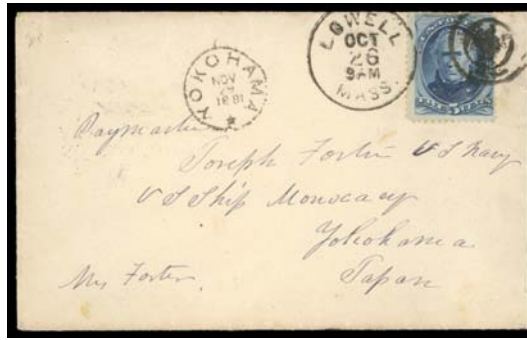 LOWELL
OCT
26
9AM
MASS.
YOKOHAMA
NOV
1881
Paymaster
Joseph Foster U S Navy
U S Ship Monocacy
Yokohama
Japan
Mrs Foster.